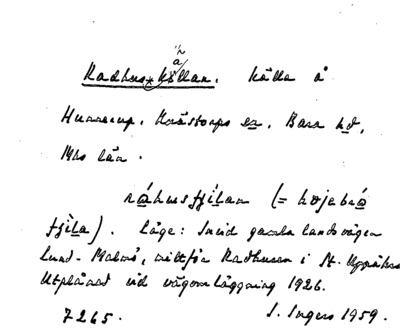 Radhus*källan. Källa å
Hunnerup. Knästorps sn, Bara hd,
Mhs län.
ráhustjílan (= höjabrå
tjìla). Läge: Invid gamla landsvägen
Lund-Malmö, mittför Radhusen i St. Uppåkra
Utplånad vid vägomläggning 1926.
7265. I. Ingers 1959.